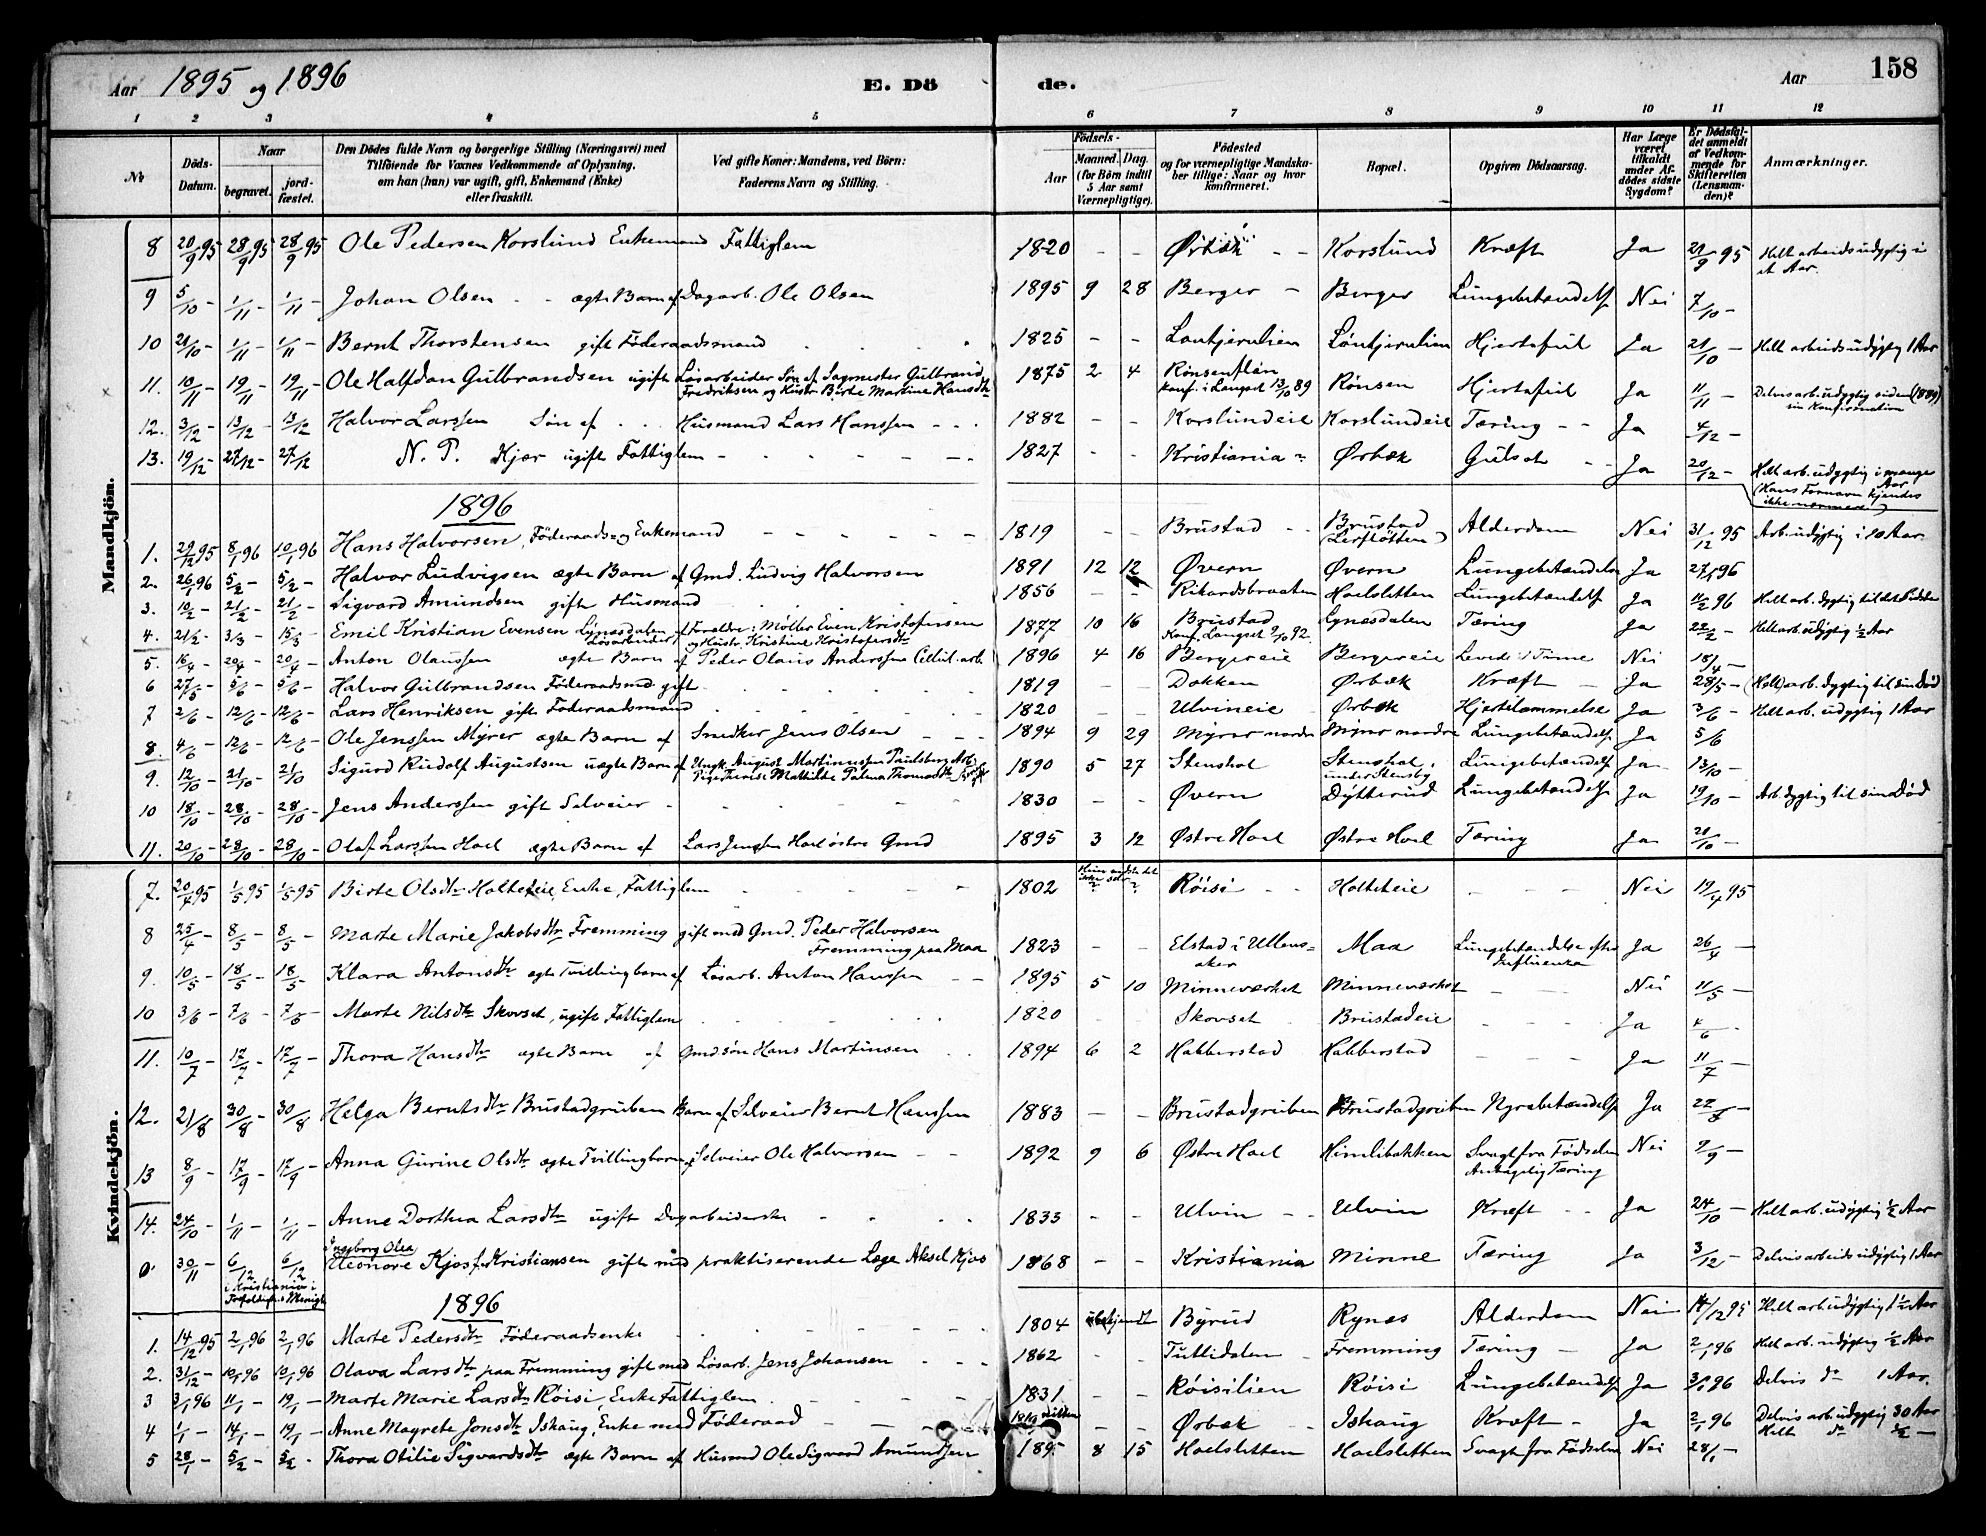 Aar 1895 og 1896 E. Dö de. Aar 158
1 2 3 4 5 6 7 8 9 10 11 12
No
Döds-Datum.
Naar
begravet.
jord-fæstet.
Den Dödes fulde Navn og borgerlige Stilling (Næringsvei) med
Tilföiende for Voxnes Vedkommende af Oplysning,
om han (hun) var ugift, gift, Enkemand (Enke)
eller fraskilt.
Ved gifte Koner: Mandens, ved Börn:
Faderens Navn og Stilling.
Födsels-
Aar
Maaned. Dag.
(for Börn indtil
5 Aar samt
Værnepligtige).
Födested
og for værnepligtige Mandska-
ber tillige: Naar og hvor
konfirmeret.
Bopæl.
Opgiven Dödsaarsag.
Har Læge
været
tilkaldt
under Af-
dödes sidste
Sygdom?
Er Dödsfal-
det anmeldt
af Vedkom-
mende for
Skifteretten
(Lensman-
den)?
Anmærkninger.
Mandkjön.
8 20/9 95 28/9 95 28/9 95 Ole Pedersen Korslund Enkemand Fattiglem 1820 - - Ørbæk - - Korslund Kræft Ja 21/9 95 Helt arbeidsudygtig i et Aar.
9 5/10 - 1/11 - 1/11 - Johan Olsen - - ægte Barn af Dagarb. Ole Olsen 1895 9 28 Berger - Berger Lungebetændelse Nei 7/10 -
10 21/10 - 1/11 - 1/11 - Bernt Thorstensen gift Föderaadsmand 1825 - - Løntjernlien Løntjernlien Hjertefeil Ja 21/10 - Helt arbeidsudygtig 1 Aar
11. 10/11 - 19/11 - 19/11 - Ole Halfdan Gulbrandsen ugift Løsarbeider Søn af Sagmester Gulbrand Fredriksen og Hustr. Birthe Martine Hansdtr 1875 2 4 Rønsenflån Konf. i Langset 13/10 89 Rønsen Hjertefeil Ja 11/11 - Delvis arb. udygtig siden (1889) sin Konfirmation
12. 3/12 - 13/12 - 13/12 Halvor Larssen Søn af Husmand Lars Hanssen - - - 1882 - - Korslundeie Korslundeie Tæring - - Ja 4/12 -
13. 19/12 - 27/12 - 27/12 N. P. Kjær ugift Fattiglem - 1827 - - Kristiania Ørbæk Gulsot - - Ja 20/12 - Helt arb. udygtig i mange Aar (Hans Fornavn kjendes ikke nærmere)
1896
1. 29/12 95 8/1 96 10/1 96 Hans Halvorsen, Föderaads- og Enkemand 1819 - - Brustad - - Brustad (Lerfløtten) Alderdom Nei 31/12 95 Arb. udygtig i 10 Aar
2. 26/1 96 5/2 - 5/2 - Halvor Ludvigsen ægte Barn af Gmd. Ludvig Halvorsen 1891 12 12 Øvern Øvern Lungebetændelse Ja 27/1 96
3. 10/2 - 21/2 - 21/2 - Sigvard Amundsen gift Husmand 1856 - - Rikardsbraaten Hoelsletten Lungebetændelse Ja 11/2 96 Helt arb. dygtig til det sidste
4. 21/2 - 3/3 - 15/3 - Emil Kristian Evensen Lynesdalen, Løsarbeider, Foreldre: Møller Even Kristofersen og Hustr. Kristine Kristofersdtr 1877 10 16 Brustad Konf. Langset 9/10 92. Lynesdalen Tæring Ja 22/2 - Helt arb. udygtig 1/2 Aar
5. 16/4 - 20/4 - 20/4 - Anton Olaussen ægte Barn af Peder Olaus Anderssen Cellul. arb. 1896 4 16 Bergereie Bergereie Levede 1 Time Nei 18/4 -
6 27/5 - 5/6 - 5/6 - Halvor Gulbrandsen Föderaadsmd. gift 1819 - - Dokken Ørbæk Kræft - Ja 28/5 - (Helt) arb. dygtig til sin Död
7 2/6 - 12/6 - 12/6 - Lars Henriksen gift Föderaadsmand 1820 - - Ulvineie Ørbæk Hjertelammelse Ja 3/6 - Helt arb. udygtig 1 Aar
8. 4/6 - 12/6 - 12/6 - Ole Jenssen Myrer ægte Barn af Snedker Jens Olsen - - - 1894 9 29 Myrer nordre Myrer nordre Lungebetændelse Ja 5/6
9. 12/10 - 21/10 - 21/10 Sigurd Rudolf Augustsen uægte Barn af Ungk. August Martinussen Paulsberg Arb. Pige Therese Mathilde Palma Thomasdtr 1890 5 27 Stenshol Stenshol under Stensby Lungebetændelse Ja 13/10 -
10 18/10 - 28/10 - 28/10 - Jens Anderssen gift Selveier - 1830 - - Øvern Dytterud Lungebetændelse Ja 19/10 - Arb. dygtig til sin Död
11. 20/10 - 28/10 - 28/10 - Olaf Larssen Hoel ægte Barn af Lars Jenssen Hoel østre Gmd 1895 3 12 Østre Hoel Østre Hoel Tæring Ja 20/10 -
Kvindekjön.
7. 20/4 95 1/5 95 1/5 95 Birte Olsdtr Holteteie, Enke, Fattiglem 1802 Røisi - - Holteteie - - - Nei 19/4 95
8 25/4 - 8/5 - 8/5 - Marte Marie Jakobsdtr Fremming gift med Gmd. Peder Halvorsen Fremming paa Maa 1823 - - Elstad i Ullensaker Maa Lungebetændelse efter Influenza Ja 26/4 -
9. 10/5 - 18/5 - 18/5 - Klara Antonsdtr ægte Tvillingbarn af Løsarb. Anton Hanssen - - 1895 5 10 Minneværket Minneværket - - Nei 11/5 -
10 3/6 - 7/6 - 7/6 - Marte Nilsdtr Skovset, ugift Fattiglem 1820 Skovset Brustadeie - - - Ja 4/6 -
11. 10/7 - 17/7 - 17/7 - Thora Hansdtr ægte Barn af Gmdsøn Hans Martinsen 1894 6 2 Habberstad Habberstad - - - Ja 11/7 -
12. 21/8 30/8 - 30/8 Helga Berntsdtr Brustadgruben Barn af Selveier Bernt Hanssen 1883 - - Brustadgruben Brustadgruben Nyrebetændelse Ja 22/8 -
13 8/9 - 17/9 - 17/9 - Anna Gurine Olsdtr ægte Tvillingbarn af Selveier Ole Halvorsen - - 1892 9 6 Østre Hoel Himlibakken Svagt fra Födselen Antagelig Tæring Nei 9/9 -
14. 24/10 - 1/11 - 1/11 - Anne Dorthea Larsdtr ugift Dagarbeiderske 1833 - - Ulvin - - Ulvin Kræft - - Ja 24/10 - Helt arb. udygtig 1/2 Aar
0 30/11 6/12 6/12 Ingeborg Olea Eleonore Kjos f. Kristiansen gift med praktiserende Læge Aksel Kjos 1868 - - Kristiania Minne Tæring Ja 3/12 - Delvis arbeidsudygtig 1 Aar
i Kristiania i
1896
1. 14/12 95 2/1 96 2/1 96 Marte Pedersdtr Föderaadsenke 1804 ubekjendt Byrud Rynes Alderdom Nei 14/12 95 Helt arb. udygtig 1 1/2 Aar
2. 31/12 - 10/1 96 10/1 96 Olava Larsdtr paa Fremming gift med Løsarb. Jens Johansen - - - 1862 - - Tuttidalen - Fremming Tæring - Ja 2/1 96 Helt arb. udygtig 1/2 Aar
3 3/1 96 11/1 - 19/1 - Marte Marie Larsdtr Røisi, Enke Fattiglem 1831. - - Røisilien Røisi Lungebetændelse Ja 3/1 96 Delvis do 1 Aar.
4 1/1 - 14/1 - 19/1 - Anne Magrete Jonsdtr Ishaug, Enke med Föderaad - - - Ørbæk - Ishaug Kræft - Ja 2/1 96 Delvis arb. udygtig 30 Aar Helt do 1/2 -
5 28/1 - 5/2 - 5/2 - Thora Otilie Sigvardsdtr ægte Barn af Husmd Ole Sigvard Amundsen 1895 8 15 Hoelsletten Hoelsletten Svagt fra Födselen Nei 28/1 -